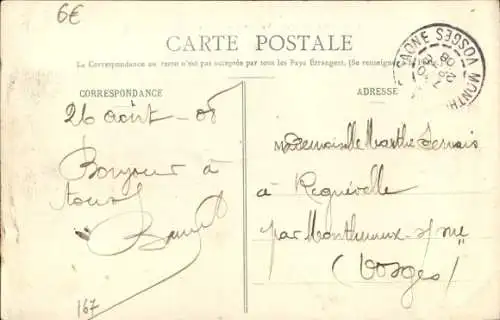 6€
CARTE POSTALE
La Correspondance au recto n'est pas acceptée par tous les Pays Étrangers, (Se renseigner
CORRESPONDANCE
ADRESSE
VOSGES MONTH
26 août - 08
Bonjour à
tous
Mademoiselle Marthe Servais
à Regnévelle
par Monthureux s/ Sne
(Vosges)
167